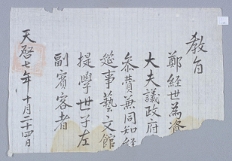 教旨
鄭經世爲資
大夫議政府
參贊兼同知經
筵事藝文館
提學世子左
副賓客者
天啓七年十月二十四日